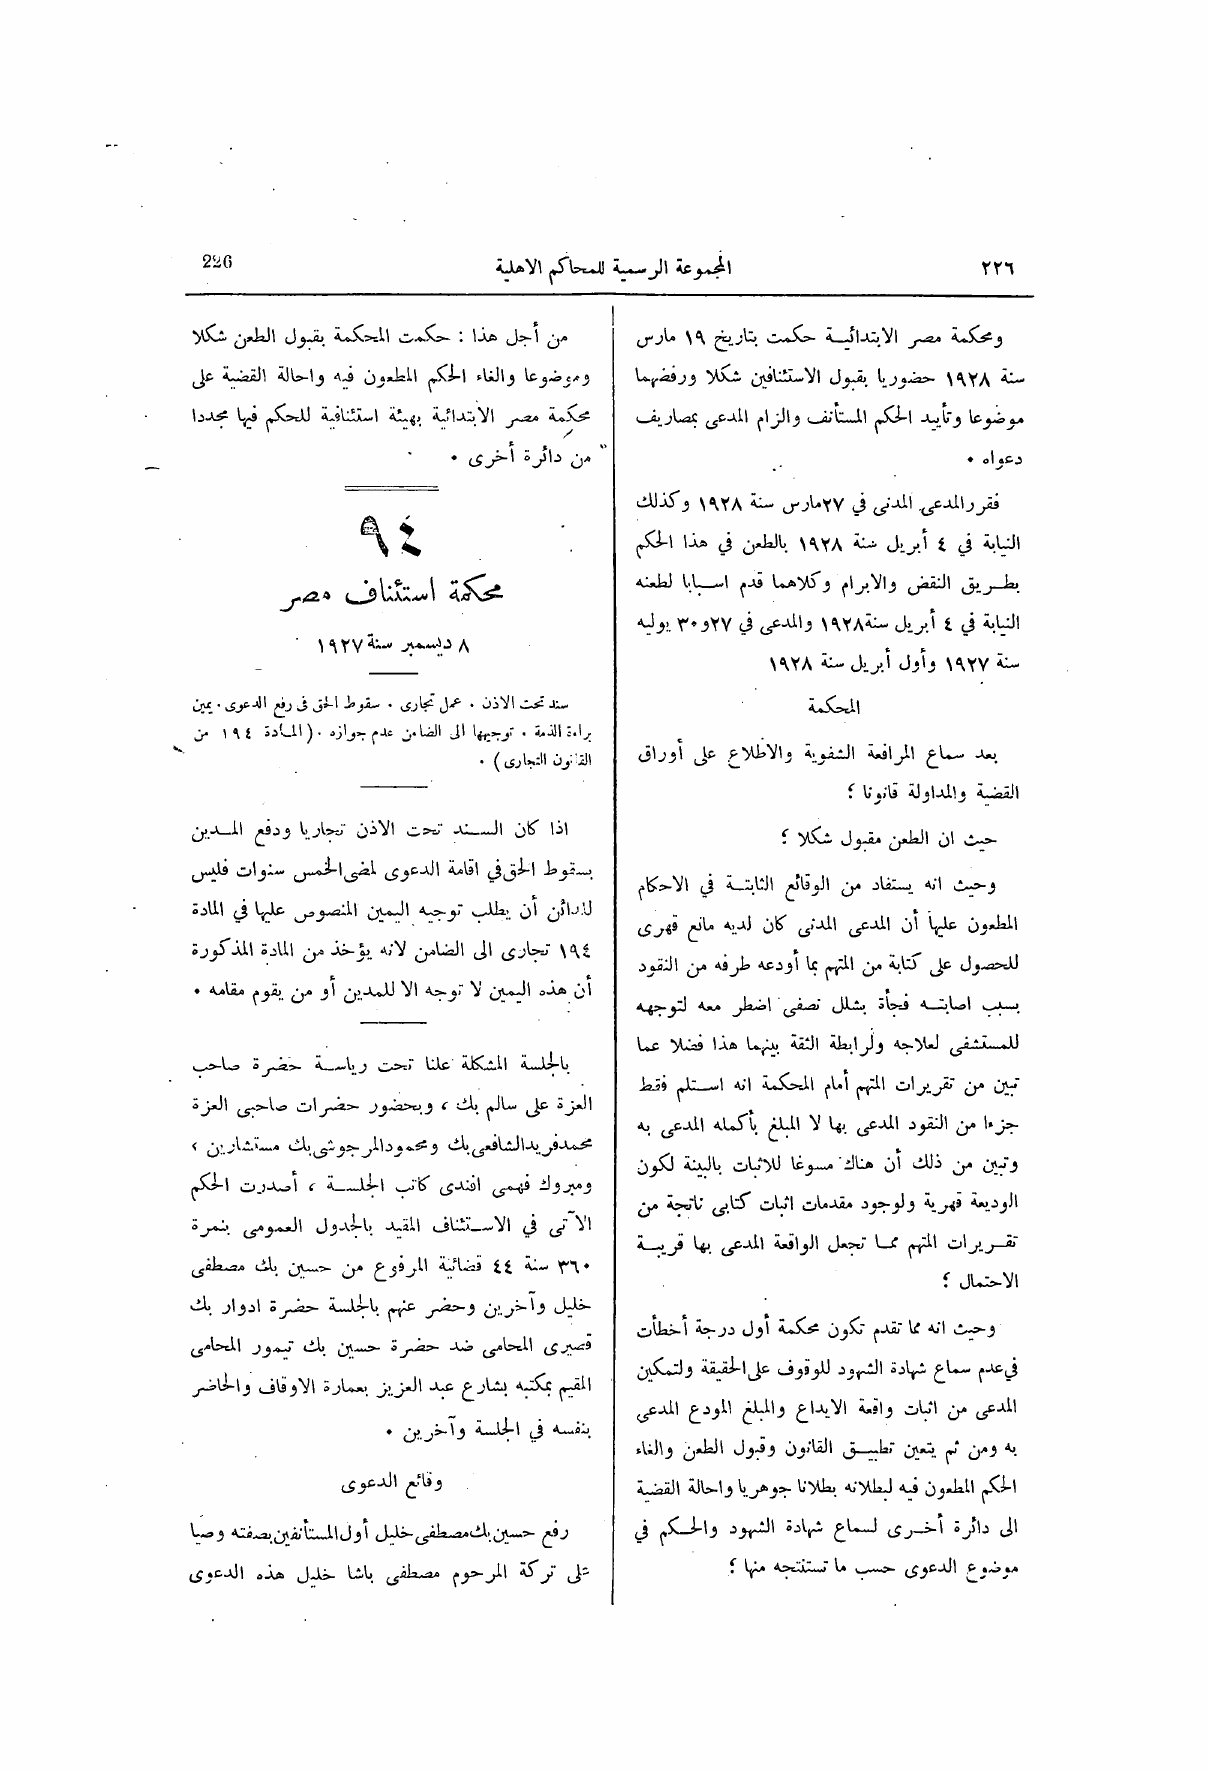 ٢٢٦
المجموعة الرسمية للمحاكم الاهلية
226
ومحكمة مصر الابتدائية حكمت بتاريخ ١٩ مارس
سنة ١٩٢٨ حضوريا بقبول الاستئنافين شكلا ورفضهما
موضوعا وتأييد الحكم المستأنف والزام المدعى بمصاريف
دعواه .
فقرر المدعى المدنى في ٢٧ مارس سنة ١٩٢٨ وكذلك
النيابة في ٤ أبريل سنة ١٩٢٨ بالطعن في هذا الحكم
بطريق النقض والابرام وكلاهما قدم اسبابا لطعنه
النيابة في ٤ أبريل سنة ١٩٢٨ والمدعى في ٢٧و٣٠ يوليه
سنة ١٩٢٧ وأول أبريل سنة ١٩٢٨
المحكمة
بعد سماع المرافعة الشفوية والاطلاع على أوراق
القضية والمداولة قانونا ؛
حيث ان الطعن مقبول شكلا ؛
وحيث انه يستفاد من الوقائع الثابتة في الاحكام
المطعون عليها أن المدعى المدنى كان لديه مانع قهرى
للحصول على كتابة من المتهم بما أودعه طرفه من النقود
بسبب اصابته فجأة بشلل نصفى اضطر معه لتوجهه
للمستشفى لعلاجه ولرابطة الثقة بينهما هذا فضلا عما
تبين من تقريرات المتهم أمام المحكمة انه استلم فقط
جزءا من النقود المدعى بها لا المبلغ بأكمله المدعى به
وتبين من ذلك أن هناك مسوغا للاثبات بالبينة لكون
الوديعة قهرية ولوجود مقدمات اثبات كتابى ناتجة من
تقريرات المتهم مما تجعل الواقعة المدعى بها قريبة
الاحتمال ؛
وحيث انه مما تقدم تكون محكمة أول درجة أخطأت
في عدم سماع شهادة الشهود للوقوف على الحقيقة ولتمكين
المدعى من اثبات واقعة الايداع والمبلغ المودع المدعى
به ومن ثم يتعين تطبيق القانون وقبول الطعن والغاء
الحكم المطعون فيه لبطلانه بطلانا جوهريا واحالة القضية
الى دائرة أخرى لسماع شهادة الشهود والحكم في
موضوع الدعوى حسب ما تستنتجه منها ؛
من أجل هذا : حكمت المحكمة بقبول الطعن شكلا
وموضوعا والغاء الحكم المطعون فيه واحالة القضية على
محكمة مصر الابتدائية بهيئة استئنافية للحكم فيها مجددا
من دائرة أخرى .
٩٤
محكمة استئناف مصر
٨ ديسمبر سنة ١٩٢٧
سند تحت الاذن . عمل تجارى . سقوط الحق فى رفع الدعوى . يمين
براءة الذمة . توجيهها الى الضامن عدم جوازه . (المادة ١٩٤ من
القانون التجارى) .
اذا كان السند تحت الاذن تجاريا ودفع المدين
بسقوط الحق في اقامة الدعوى لمضى الخمس سنوات فليس
للدائن أن يطلب توجيه اليمين المنصوص عليها في المادة
١٩٤ تجارى الى الضامن لانه يؤخذ من المادة المذكورة
أن هذه اليمين لا توجه الا للمدين أو من يقوم مقامه .
بالجلسة المشكلة علنا تحت رياسة حضرة صاحب
العزة على سالم بك ، وبحضور حضرات صاحبى العزة
محمد فريد الشافعى بك ومحمود المرجوشى بك مستشارين ،
ومبروك فهمى افندى كاتب الجلسة ، أصدرت الحكم
الآتى في الاستئناف المقيد بالجدول العمومى بنمرة
٣٦٠ سنة ٤٤ قضائية المرفوع من حسين بك مصطفى
خليل وآخرين وحضر عنهم بالجلسة حضرة ادوار بك
قصيرى المحامى ضد حضرة حسين بك تيمور المحامى
المقيم بمكتبه بشارع عبد العزيز بعمارة الاوقاف والحاضر
بنفسه في الجلسة وآخرين .
وقائع الدعوى
رفع حسين بك مصطفى خليل أول المستأنفين بصفته وصيا
على تركة المرحوم مصطفى باشا خليل هذه الدعوى